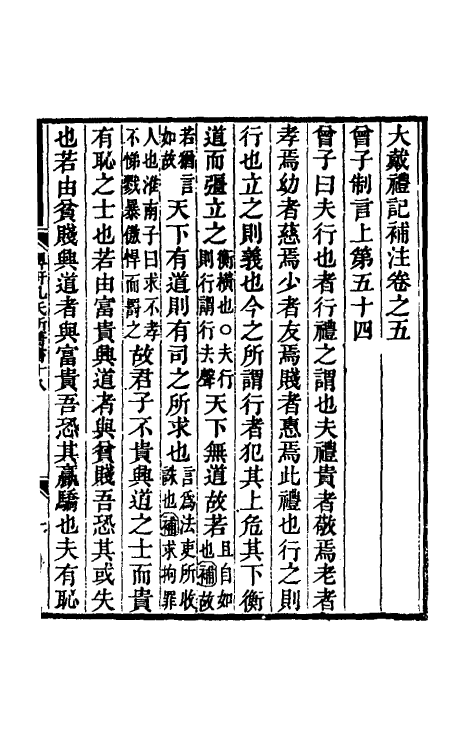 大戴禮記補注卷之五
曾子制言上第五十四
曾子曰夫行也者行禮之謂也夫禮貴者敬焉老者
孝焉幼者慈焉少者友焉賤者惠焉此禮也行之則
行也立之則義也今之所謂行者犯其上危其下衡
道而彊立之衡橫也○夫行則行謂行去聲天下無道故若且自如也補故
若猶言如故天下有道則有司之所求也言爲法吏所收誅也補求拘罪
人也淮南子曰求不孝不悌戮暴傲悍而罰之故君子不貴興道之士而貴
有恥之士也若由富貴興道者與貧賤吾恐其或失
也若由貧賤興道者與富貴吾恐其羸驕也夫有恥